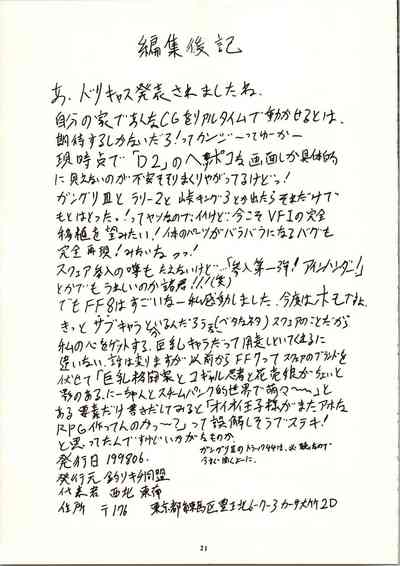 編集後記
あ、ドリキャス発表されましたね。
自分の家であんなCGをリアルタイムで動かせるとは、
期待するしかないだろ!ってカンジーってゆーかー
現時点で「D2」のヘッポコな画面しか具体的
に見えないのが不安をそりまくりやがってるけどっ!
ガングリⅢとラリー2と峠キング3とか出たらそれだけで
もとはとったっ!ってヤツなのでイイけど、今こそVF1の完全
移植を望みたい!人体のパーツがバラバラになるバグも
完全再現!みたいなっっ!
スクェア参入の噂もたえないけど…「参入第一弾!アインハンダー!」
とかでもうまいのか諸君!!!(笑)
でもFF8はすごいなー私感動しました、今度はホモですよ。
きっとサブキャラといるんだろうな(ベタなネタ)スクェアのことだから
私の心をゲットする、巨乳キャラだって用意していてくるに
違いない、話は変りますが以前からFF7ってスクェアのブランドを
伏せて「巨乳格闘家とコギャル忍者と花売娘がちょいと
影のある、にーちゃんとスチームパンク的世界で萌々〜〜」と
ある要素だけ書きだしてみると「オイオイ王子様がまたアホな
RPG作ってんのかっ〜て」って誤解しそうでステキ!
と思ってたんですけどいかがなものか
発行日 199806.
発行元 釣りキチ同盟
代表者 西北 東南
住所 〒176 東京都練馬区豊玉北6-7-3カーサ大竹2D
21